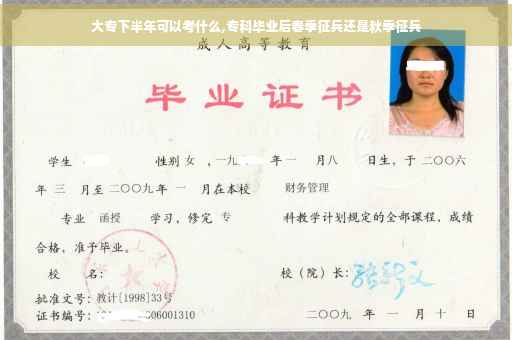 大专下半年可以考什么,专科毕业后春季征兵还是秋季征兵
成人高等教育
毕业证书
学生 性别 女 ,一九 年一 月八 日生，于二〇〇六
年 三 月至二〇〇九年 一 月在本校 财务管理
专业 函授 学习，修完 专 科教学计划规定的全部课程，成绩
合格，准予毕业。
校 名： 校（院）长：
批准文号：教计[1998]33号
证书编号： 06001310 二〇〇九 年 一 月 十 日